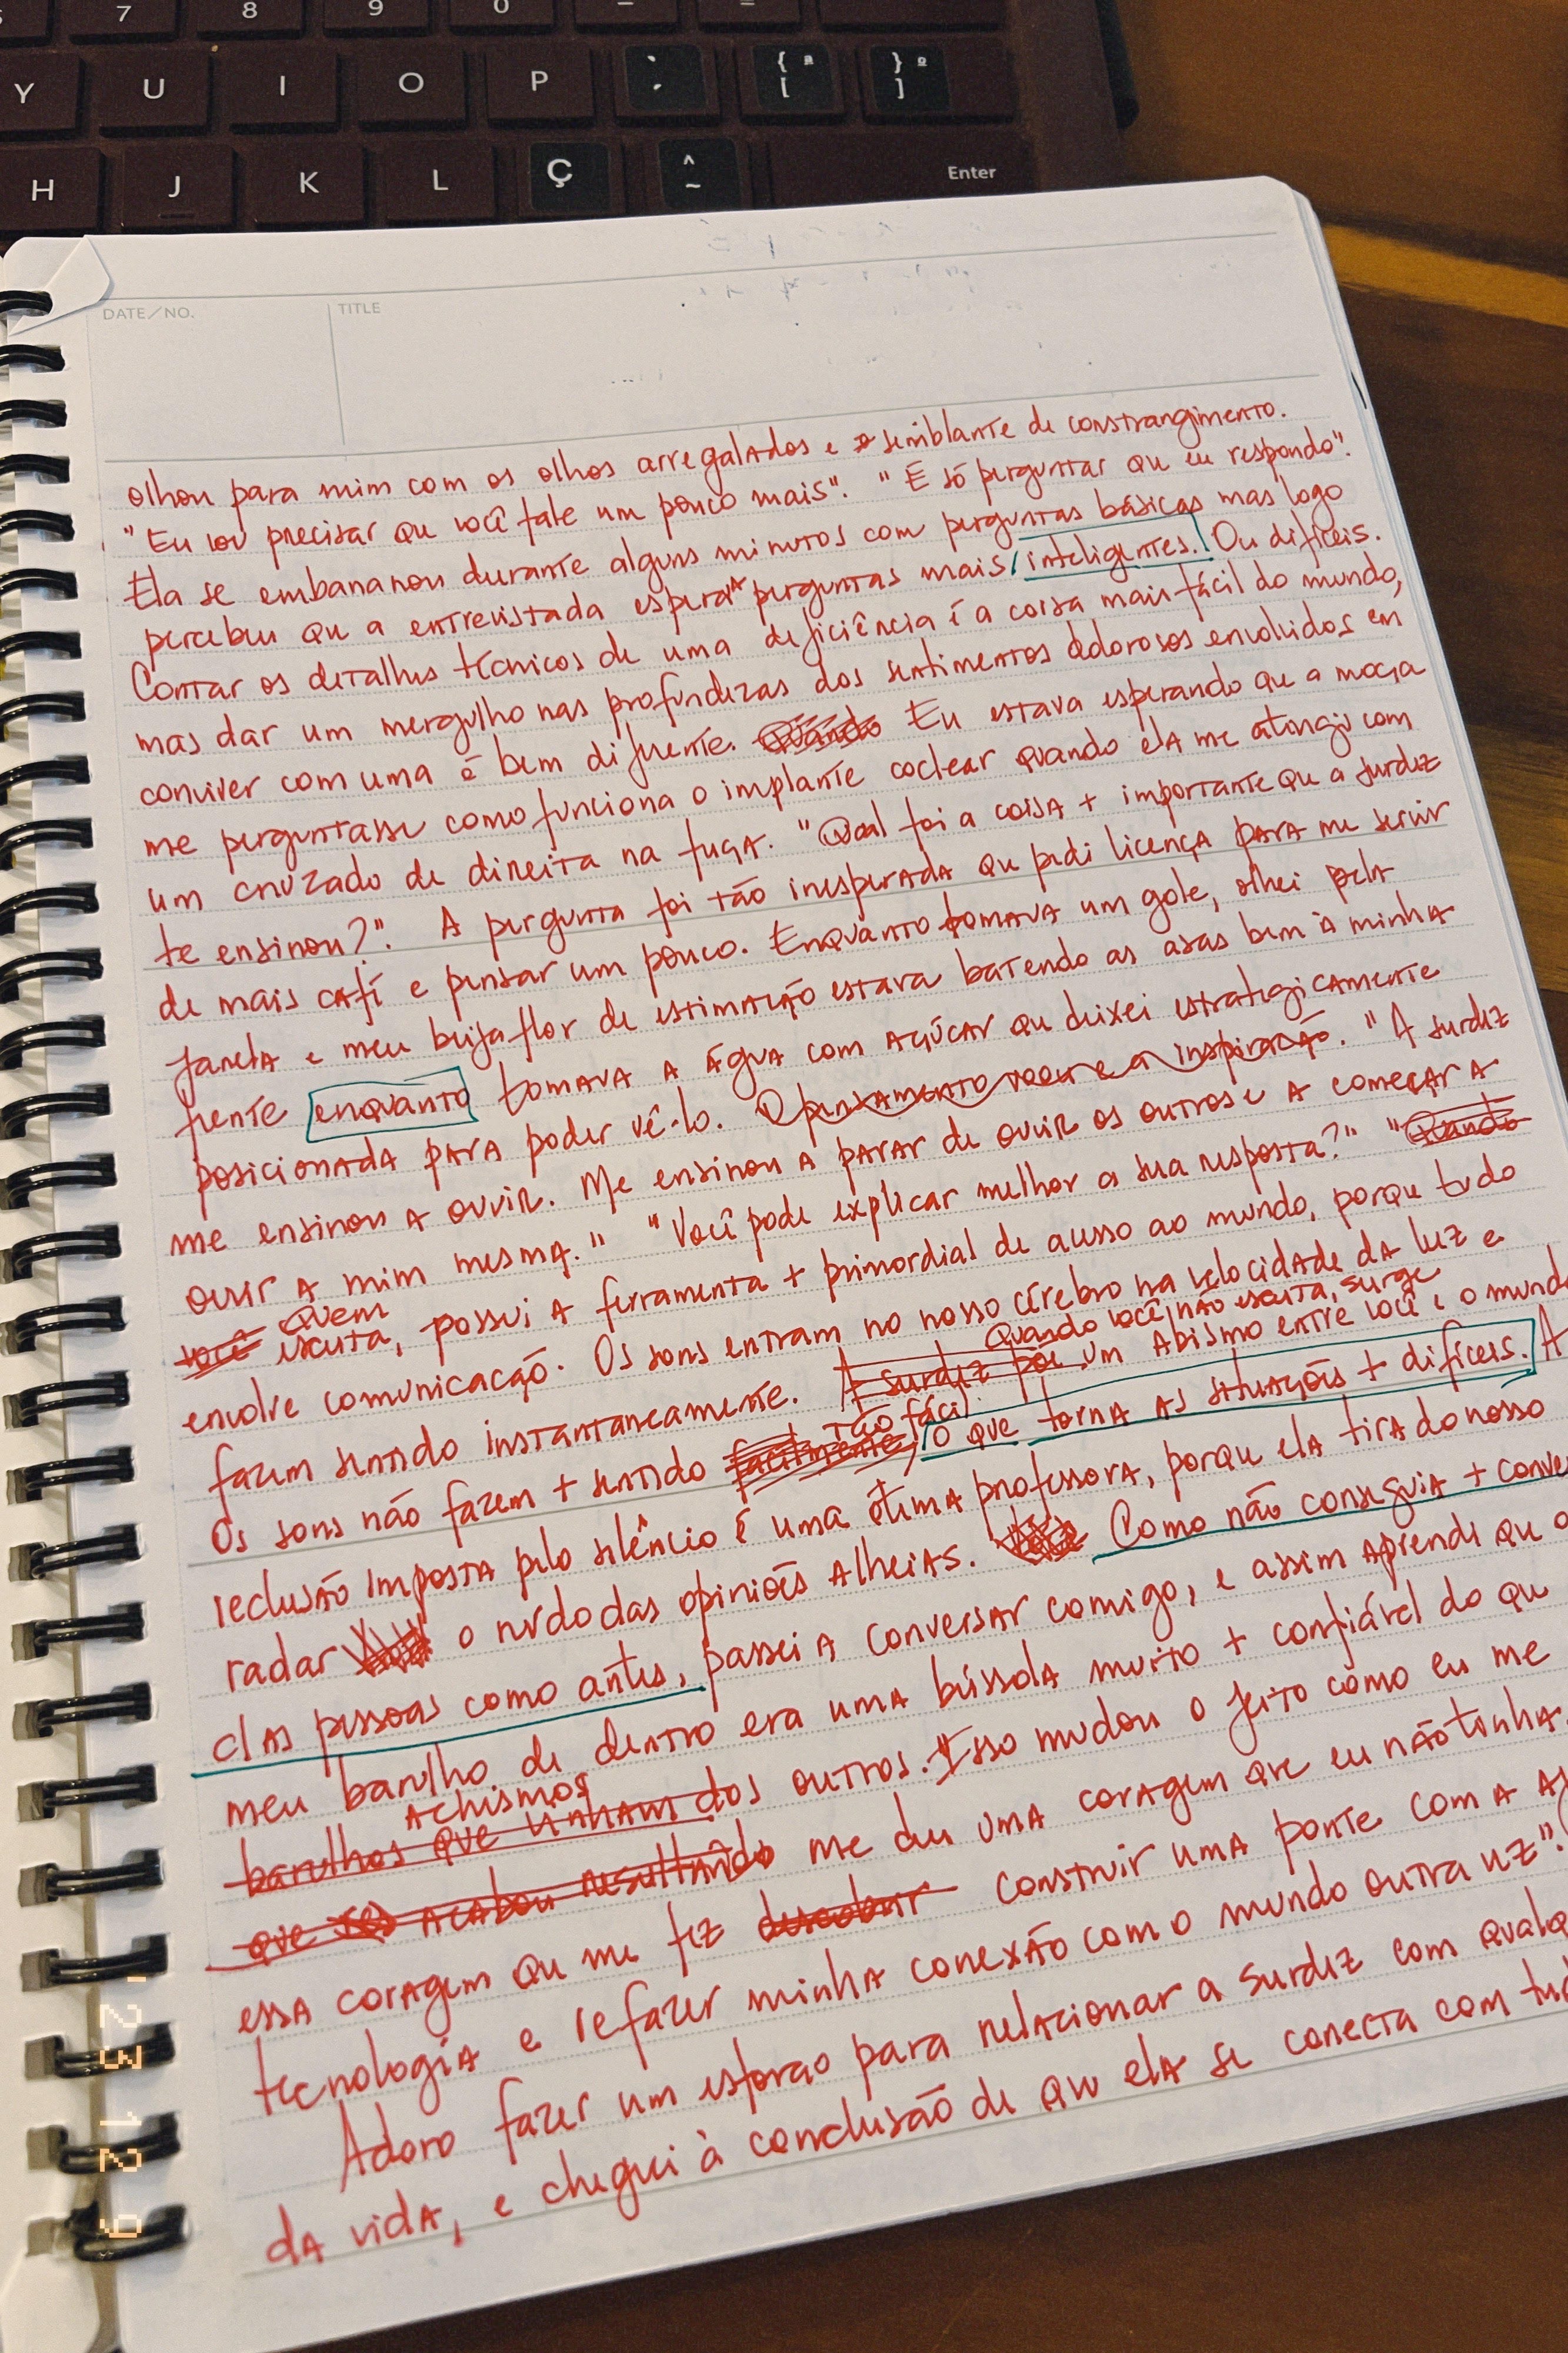 7 8 9 0 - =
Y U I O P ` ´ { ª [ } º ]
H J K L Ç ^ ~ Enter
DATE/NO. TITLE
olhou para mim com os olhos arregalados e o semblante de constrangimento.
"Eu vou precisar que você fale um pouco mais". "É só perguntar que eu respondo".
Ela se embananou durante alguns minutos com perguntas básicas mas logo
percebeu que a entrevistada espera perguntas mais inteligentes. Ou difíceis.
Contar os detalhes técnicos de uma deficiência é a coisa mais fácil do mundo,
mas dar um mergulho nas profundezas dos sentimentos dolorosos envolvidos em
conviver com uma é bem diferente. Quando Eu estava esperando que a moça
me perguntasse como funciona o implante coclear quando ela me atingiu com
um cruzado de direita na fuça. "Qual foi a coisa + importante que a surdez
te ensinou?". A pergunta foi tão inesperada que pedi licença para me servir
de mais café e pensar um pouco. Enquanto tomava um gole, olhei pela
janela e meu beija flor de estimação estava batendo as asas bem à minha
frente enquanto tomava a água com açúcar que deixei estrategicamente
posicionada para poder vê-lo. O pensamento voou e a inspiração. "A surdez
me ensinou a ouvir. Me ensinou a parar de ouvir os outros e a começar a
ouvir a mim mesma." "Você pode explicar melhor a sua resposta?" "Quando
você Quem escuta, possui a ferramenta + primordial de acesso ao mundo, porque tudo
envolve comunicação. Os sons entram no nosso cérebro na velocidade da luz e
fazem sentido instantaneamente. A surdez põe Quando você não escuta, surge um abismo entre você e o mundo
Os sons não fazem + sentido facilmente, tão fácil. o que torna as situações + difíceis. A
reclusão imposta pelo silêncio é uma ótima professora, porque ela tira do nosso
radar o ruído das opiniões alheias. Como não conseguia + conve
das pessoas como antes, passei a conversar comigo, e assim aprendi que o
meu barulho de dentro era uma bússola muito + confiável do que
barulhos que vinham achismos dos outros. Isso mudou o jeito como eu me
que acabou resultando me deu uma coragem que eu não tinha.
essa coragem que me fez descobrir construir uma ponte com a
tecnologia e refazer minha conexão com o mundo outra vez".
Adoro fazer um esforço para relacionar a surdez com qualq
da vida, e cheguei à conclusão de que ela se conecta com tud
'23 12 9